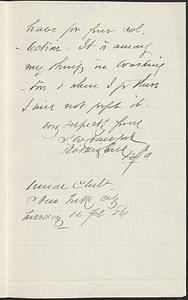 have for your col
-lection. It is among
my things in Washing
-ton & when I go there
I will not forget it.
Very respectfully yours
Union Club
New York City
Tuesday 16 Feb